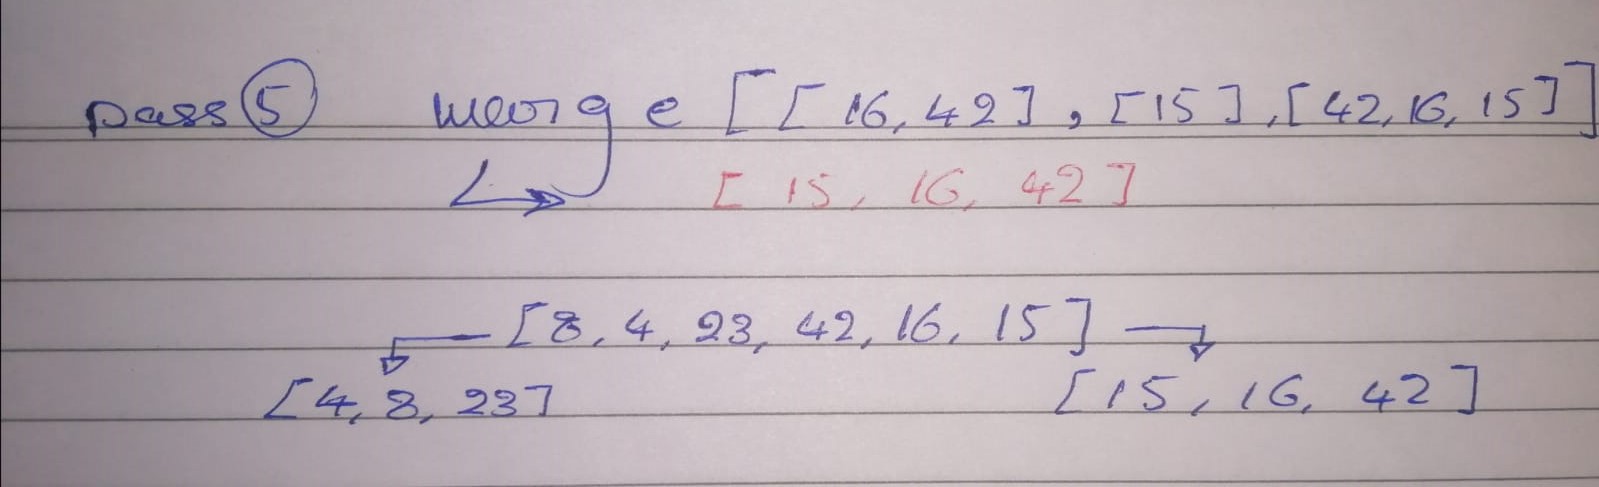 pass 5 merge [[16, 42], [15], [42, 16, 15]]
[15, 16, 42]
[8, 4, 23, 42, 16, 15]
[4, 8, 23] [15, 16, 42]